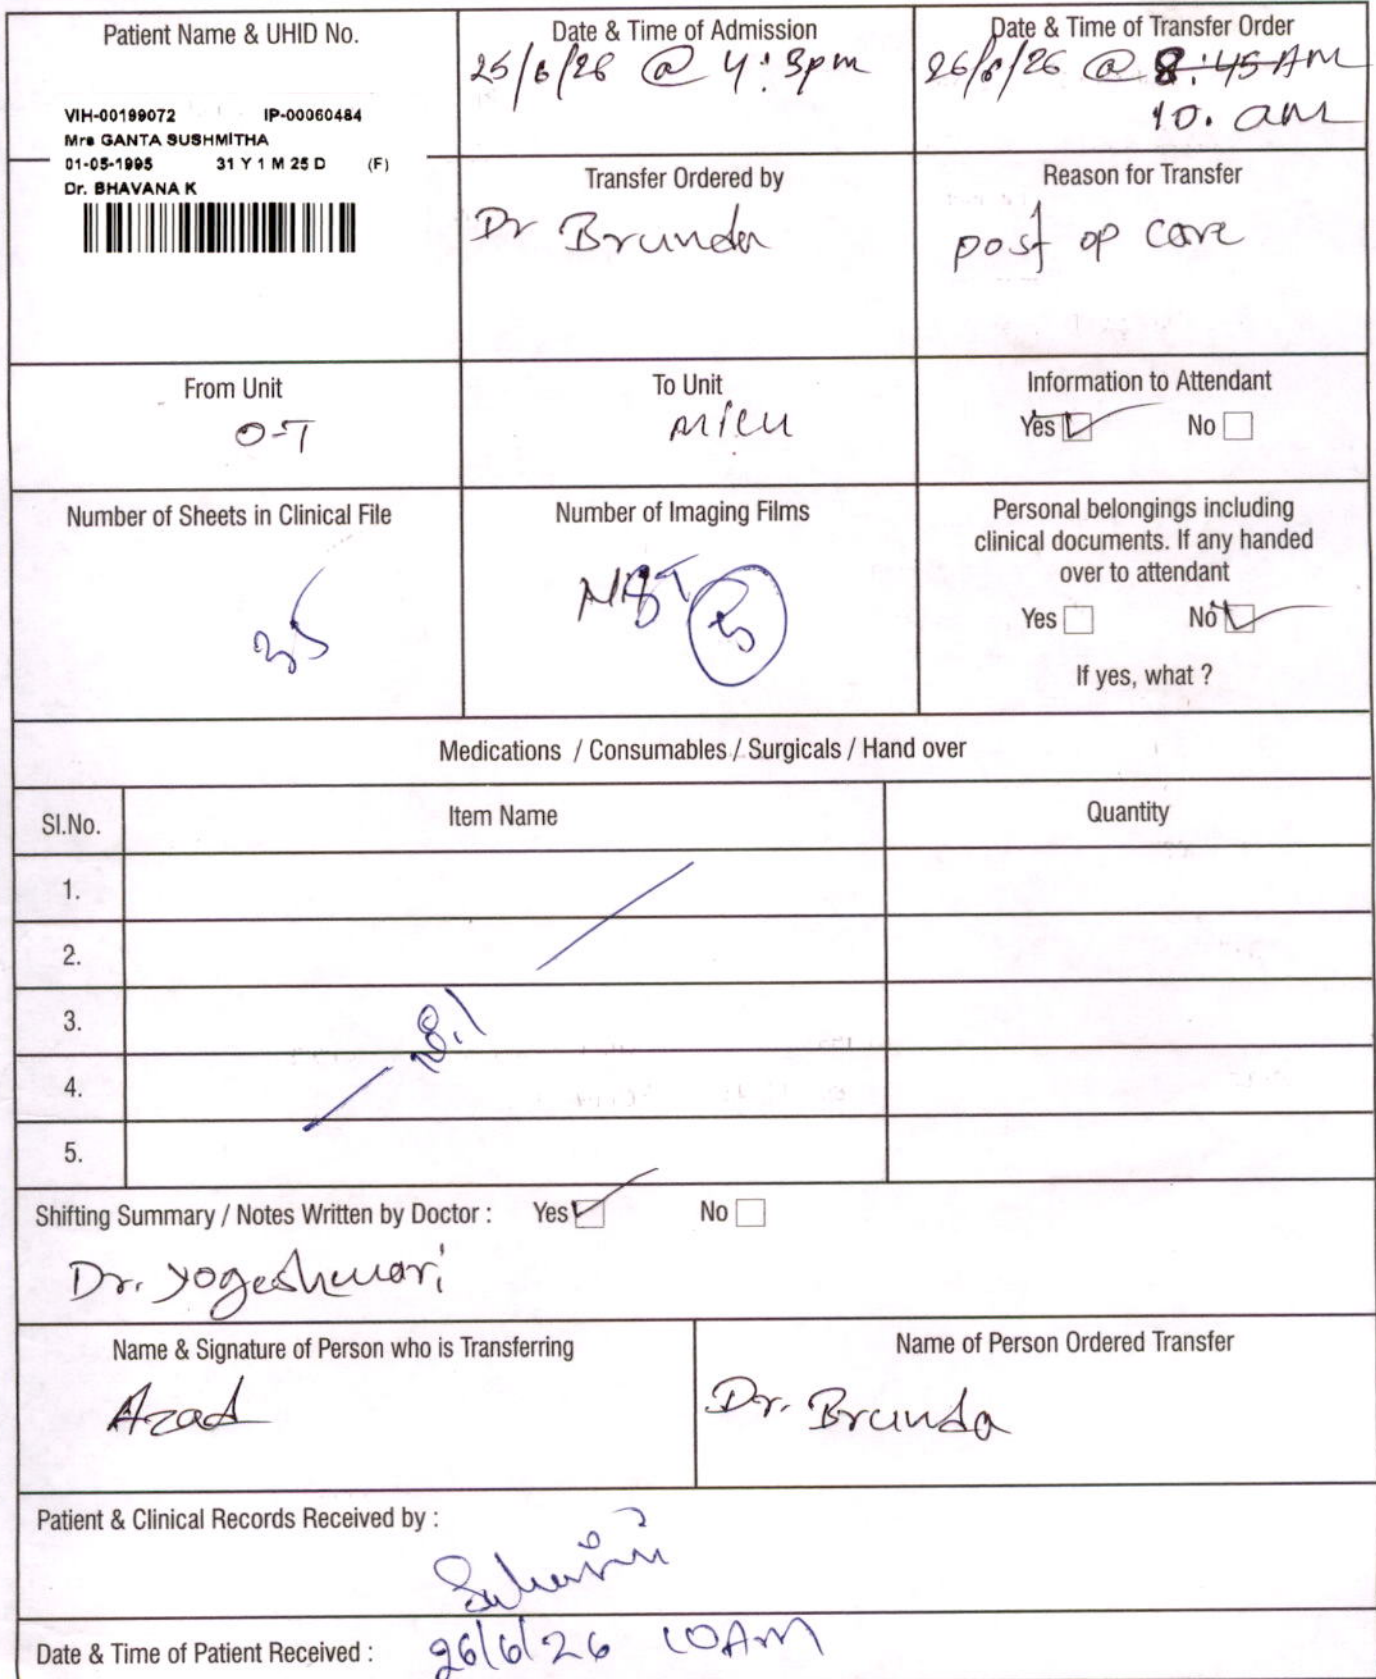 Patient Name & UHID No.
VIH-00199072 IP-00060484
Mrs GANTA SUSHMITHA
01-05-1995 31 Y 1 M 25 D (F)
Dr. BHAVANA K
Date & Time of Admission
25/6/26 @ 4:3pm
Date & Time of Transfer Order
26/6/26 @ 8:45 AM
10. am
Transfer Ordered by
Dr Brunda
Reason for Transfer
post op care
From Unit
O-T
To Unit
MICU
Information to Attendant
Yes No
Number of Sheets in Clinical File
35
Number of Imaging Films
NST
Personal belongings including
clinical documents. If any handed
over to attendant
Yes No
If yes, what ?
Medications / Consumables / Surgicals / Hand over
Sl.No. Item Name Quantity
1.
2.
3.
4.
5.
Shifting Summary / Notes Written by Doctor : Yes No
Dr. Yogeshwari
Name & Signature of Person who is Transferring
Azad
Name of Person Ordered Transfer
Dr. Brunda
Patient & Clinical Records Received by :
Date & Time of Patient Received : 26/6/26 10AM